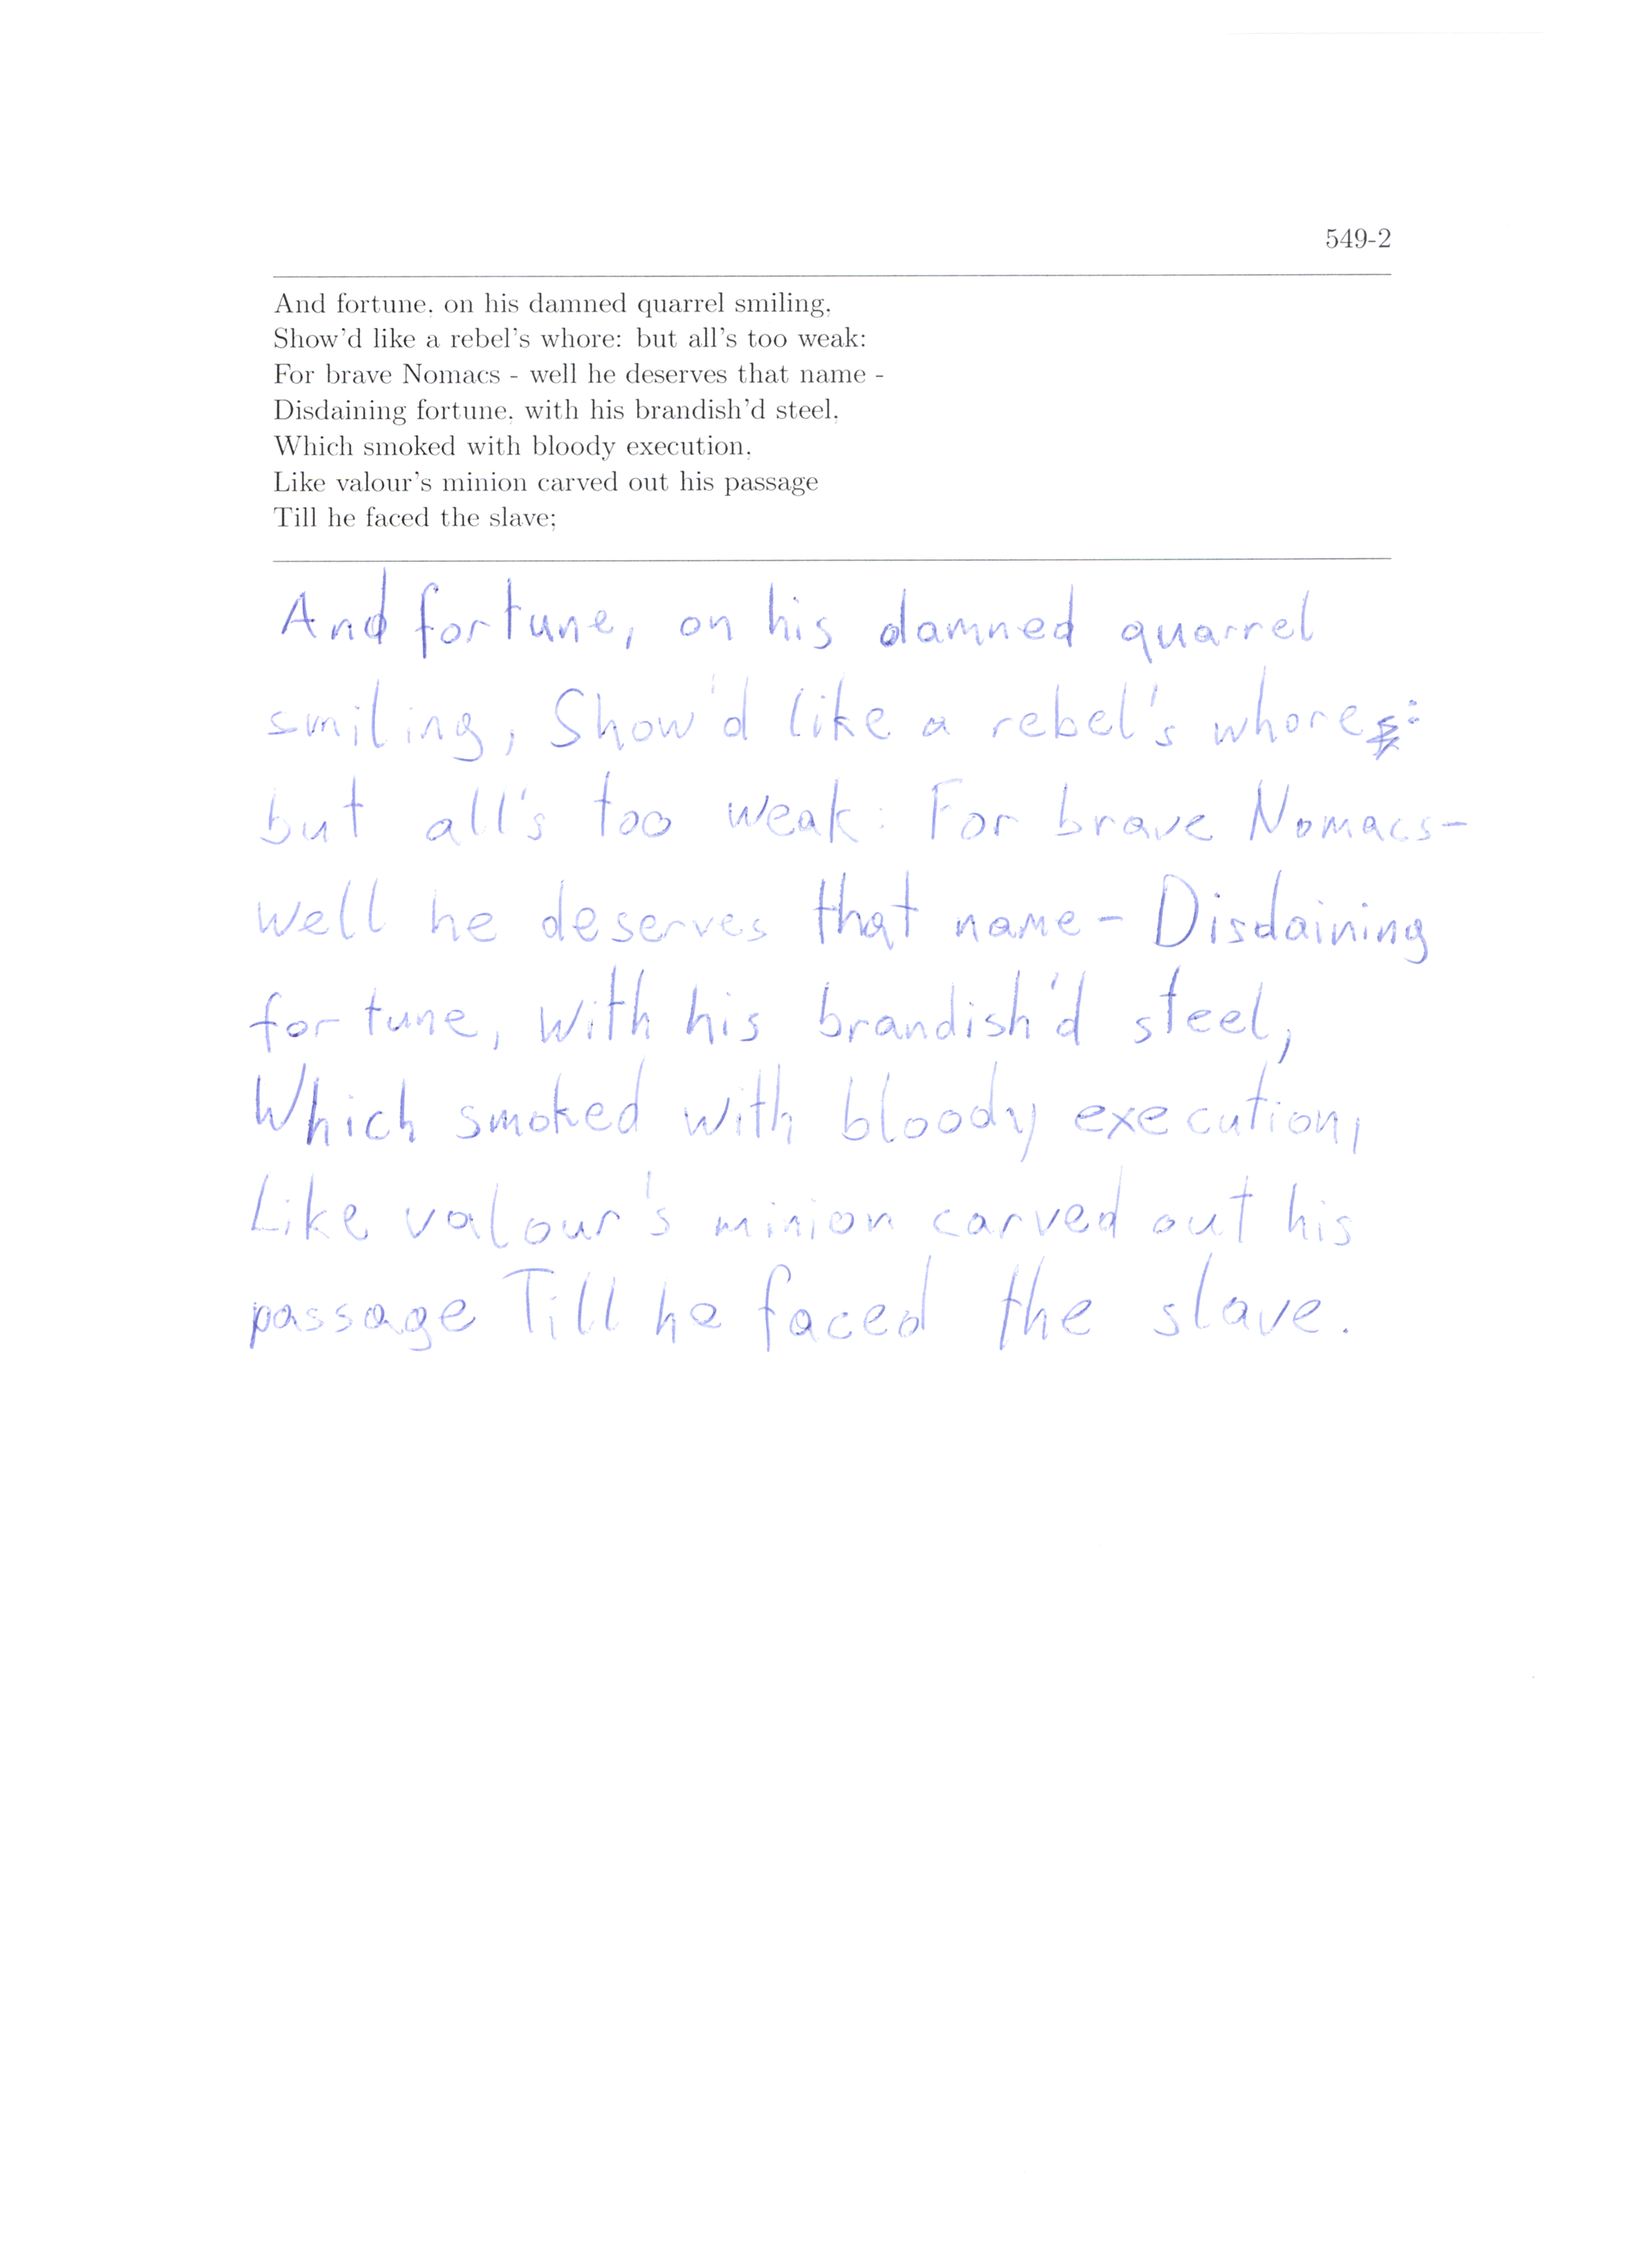 549-2
And fortune, on his damned quarrel smiling,
Show'd like a rebel's whore: but all's too weak:
For brave Nomacs - well he deserves that name -
Disdaining fortune, with his brandish'd steel,
Which smoked with bloody execution,
Like valour's minion carved out his passage
Till he faced the slave;
And fortune, on his damned quarrel
smiling, Show'd like a rebel's whore:
but all's too weak: For brave Nomacs-
well he deserves that name - Disdaining
fortune, with his brandish'd steel,
Which smoked with bloody execution,
Like valour's minion carved out his
passage Till he faced the slave.